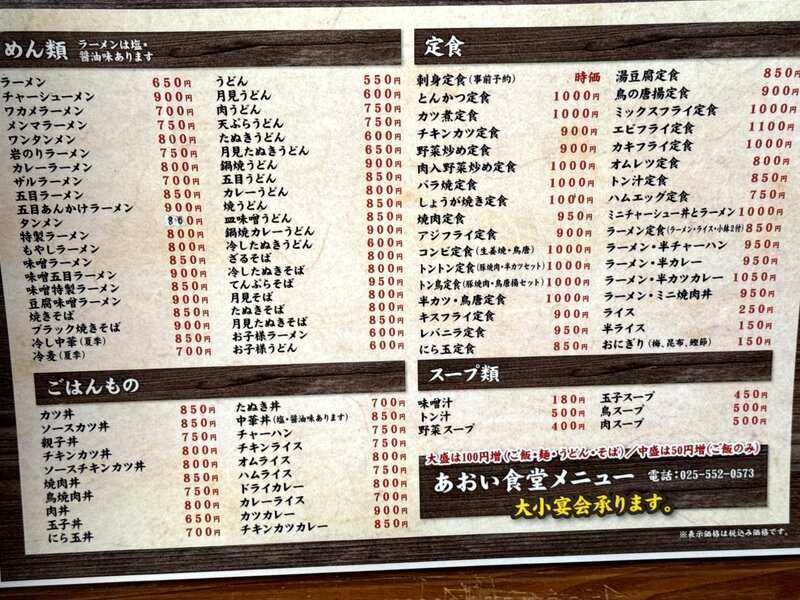 めん類 ラーメンは塩・醤油味あります
ラーメン 650円
チャーシューメン 900円
ワカメラーメン 700円
メンマラーメン 750円
ワンタンメン 800円
岩のりラーメン 750円
カレーラーメン 800円
ザルラーメン 700円
五目ラーメン 850円
五目あんかけラーメン 900円
タンメン
特製ラーメン 800円
もやしラーメン 800円
味噌ラーメン 850円
味噌五目ラーメン 900円
味噌特製ラーメン 850円
豆腐味噌ラーメン 900円
焼きそば 850円
ブラック焼きそば 900円
冷し中華(夏季) 950円
冷麦(夏季) 700円
うどん 550円
月見うどん 600円
肉うどん 750円
天ぷらうどん 750円
たぬきうどん 600円
月見たぬきうどん 650円
鍋焼うどん 900円
五目うどん 800円
カレーうどん 800円
焼うどん 850円
皿味噌うどん 850円
鍋焼カレーうどん 900円
冷したぬきうどん 850円
ざるそば 800円
冷したぬきそば 850円
てんぷらそば 950円
月見そば 800円
たぬきそば 800円
月見たぬきそば 850円
お子様ラーメン 600円
お子様うどん 600円
ごはんもの
カツ丼 850円
ソースカツ丼 850円
親子丼 750円
チキンカツ丼 800円
ソースチキンカツ丼 800円
焼肉丼 850円
鳥焼肉丼 750円
肉丼 800円
玉子丼 650円
にら玉丼 700円
たぬき丼 700円
中華丼(塩・醤油味あります) 850円
チャーハン 750円
チキンライス 750円
オムライス 850円
ハムライス 750円
ドライカレー 800円
カレーライス 700円
カツカレー 900円
チキンカツカレー 850円
定食
刺身定食(事前予約) 時価
とんかつ定食 1000円
カツ煮定食 1000円
チキンカツ定食 900円
野菜炒め定食 900円
肉入野菜炒め定食 1000円
バラ焼定食 1000円
しょうが焼き定食 1000円
焼肉定食 950円
アジフライ定食 900円
コンビ定食(生姜焼・鳥唐) 1000円
トントン定食(豚焼肉・半カツセット) 1000円
トン鳥定食(豚焼肉・鳥唐揚セット) 1000円
半カツ・鳥唐定食 1000円
キスフライ定食 900円
レバニラ定食 950円
にら玉定食 800円
湯豆腐定食 850円
鳥の唐揚定食 900円
ミックスフライ定食 1000円
エビフライ定食 1100円
カキフライ定食 1000円
オムレツ定食 800円
トン汁定食 850円
ハムエッグ定食 750円
ミニチャーシュー丼とラーメン 1000円
ラーメン定食(ラーメン・ライス・小鉢2付) 850円
ラーメン・半チャーハン 950円
ラーメン・半カレー 950円
ラーメン・半カツカレー 1050円
ラーメン・ミニ焼肉丼 950円
ライス 250円
半ライス 150円
おにぎり(梅、昆布、鰹節) 150円
スープ類
味噌汁 180円
トン汁 500円
野菜スープ 400円
玉子スープ 450円
鳥スープ 500円
肉スープ 500円
大盛は100円増(ご飯・麺・うどん・そば)/中盛は50円増(ご飯のみ)
あおい食堂メニュー 電話:025-552-0573
大小宴会承ります。
※表示価格は税込み価格です。